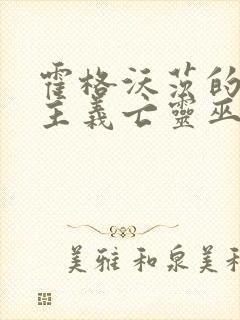 霍格沃茨的
主義亡靈巫
美雅和泉美和